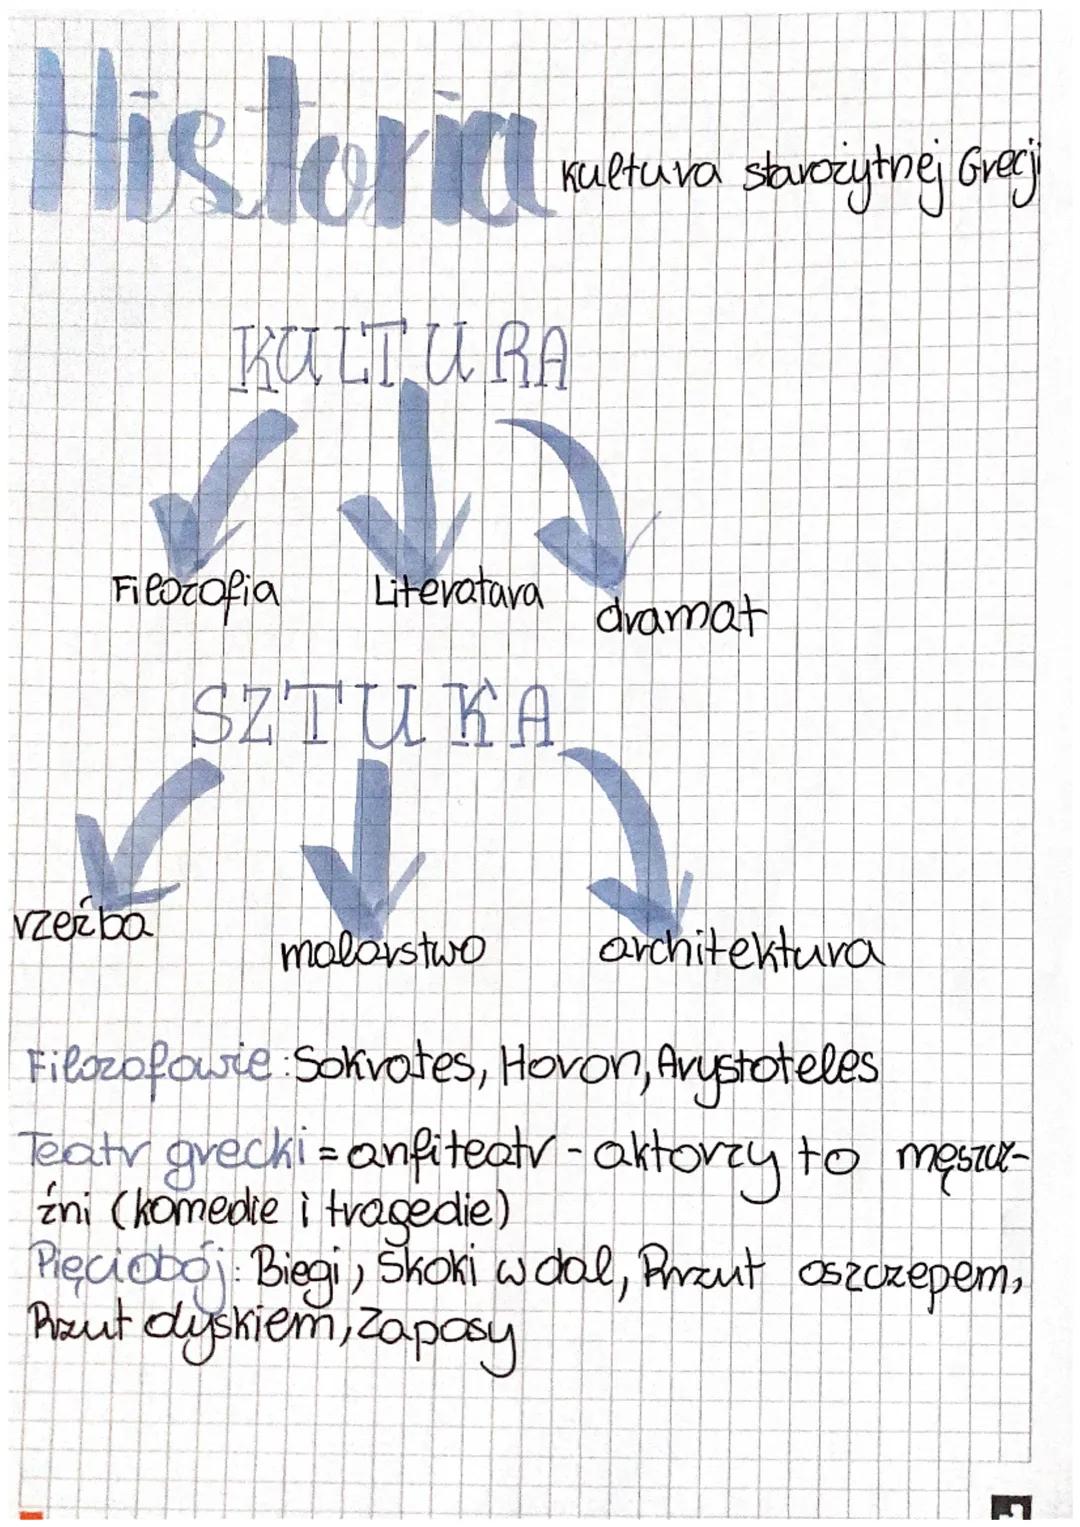 Historia
kultura starożytnej Grecji
KULTURA
Filozofia Literatura
dramat
SZTUKA
rzeźba
malarstwo architektura
Filozofowie: Sokrates, Horon, Arystoteles
Teatr grecki = anfiteatr - aktorzy to męszczy-
źni (komedie i tragedie)
Pięciobój: Biegi, Skoki w dal, Przut oszczepem,
Rzut dyskiem, Zapasy